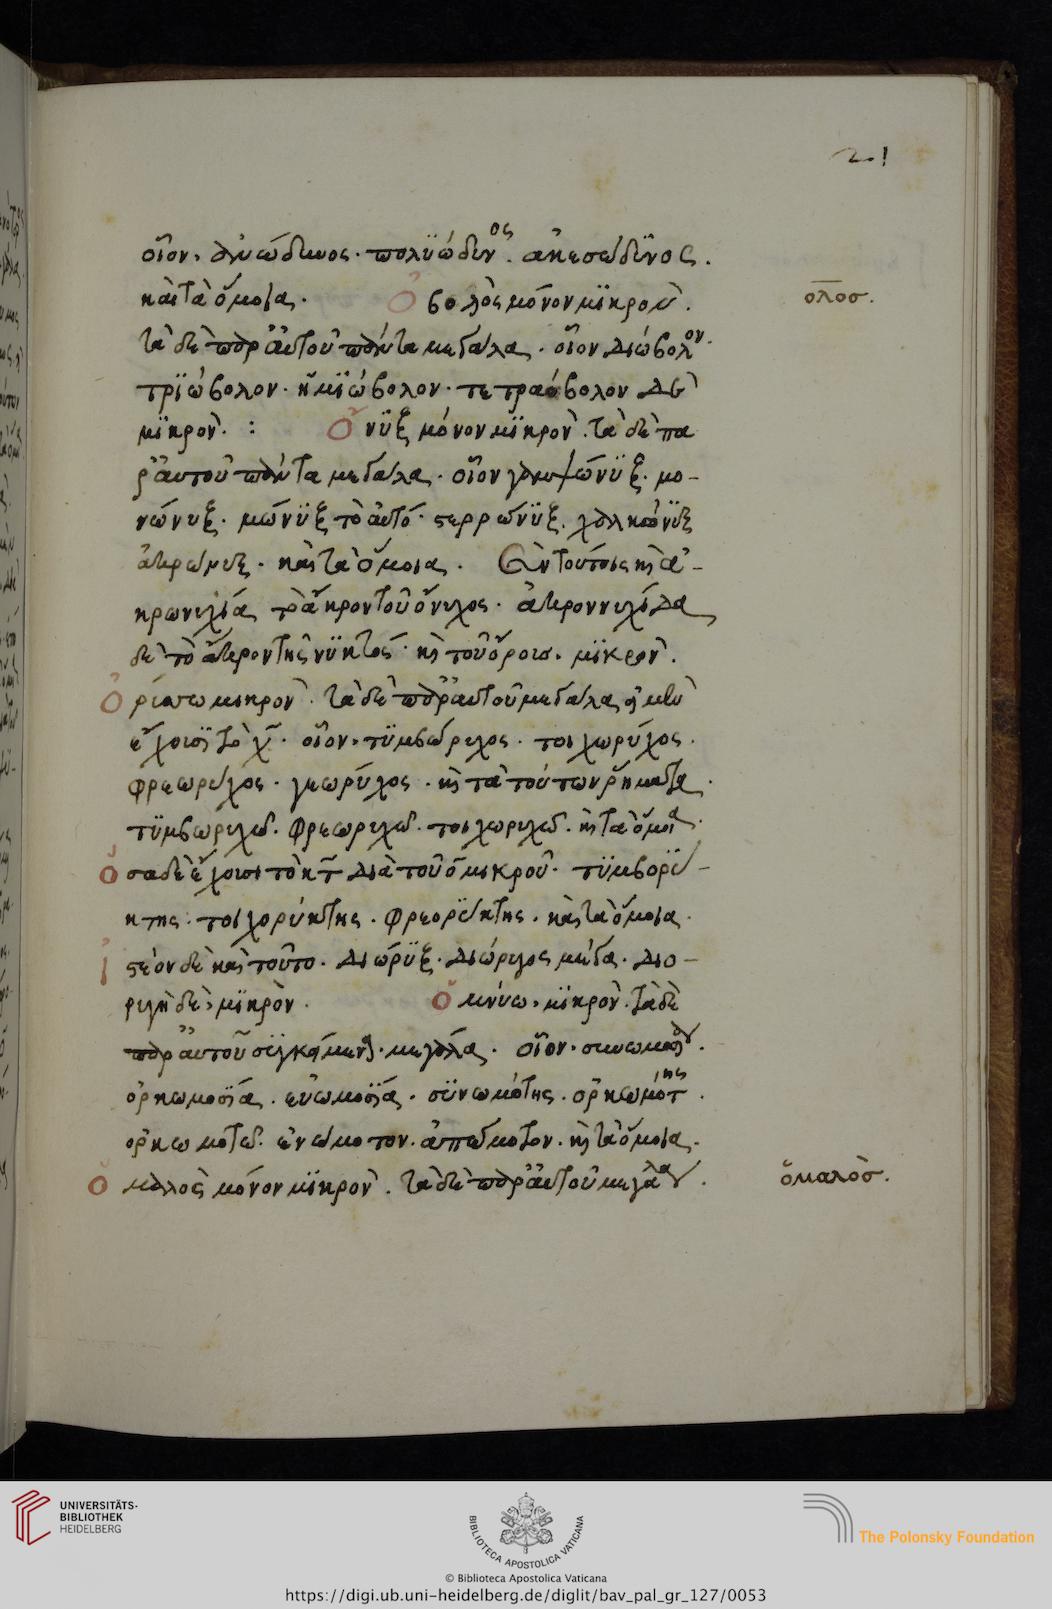 21
οἷον· ἀνώδινος· πολυώδινος. ἀπεσώδινος.
καὶ τὰ ὅμοια. Ὀβολὸς μόνον μικρόν.
ολοσ.
τὰ δὲ παρ' αὐτοῦ πάντα μεγάλα· οἷον διώβολον.
τριώβολον· ἡμιώβολον· τετραόβολον δὲ
μικρόν. : Ὄνυξ μόνον μικρόν. τὰ δὲ πα
ρ' αὐτοῦ πάντα μεγάλα· οἷον γαμψώνυξ. μο-
νώνυξ· μώνυξ τὸ αὐτό· στερρώνυξ. χαλκώνυξ
ἀκρώνυξ. καὶ τὰ ὅμοια. Ἐν τούτοις καὶ ἀ-
κρωνυχία τὸ ἄκρον τοῦ ὄνυχος· ἀκροννυχίδα
δὲ τὸ ἄκρον τῆς νυκτός· καὶ τοῦ ὄρους. μικρόν.
Ὀρύσσω μικρόν. τὰ δὲ παρ' αὐτοῦ μεγάλα εἰ μὲν
ἔχουσι τὸ χ̄. οἷον· τυμβώρυχος. τοιχωρύχος.
φρεωρύχος. γεωρύχος. καὶ τὰ τούτων ῥήματα.
τυμβωρυχῶ. φρεωρυχῶ. τοιχωρυχῶ. καὶ τὰ ὅμοια.
Ὅσα δὲ ἔχουσι τὸ κτ̄ διὰ τοῦ ο μικροῦ. τυμβορύ-
κτης. τοιχορύκτης. φρεορύκτης. καὶ τὰ ὅμοια.
Ἰστέον δὲ καὶ τοῦτο. διώρυξ. διώρυχος μέγα. διο-
ρυχὴ δὲ, μικρὸν. Ὀμνύω, μικρόν. τὰ δὲ
παρ' αὐτοῦ συγκείμενα. μεγάλα. οἷον. συνωμοσία.
ὁρκωμοσία. εὐωμοσία. συνωμότης. ὁρκωμότης.
ὁρκωμοτῶ. ἐνώμοτον. ἀπώμοτον. καὶ τὰ ὅμοια.
Ὁμαλὸς μόνον μικρόν. τὰ δὲ παρ' αὐτοῦ μεγάλα.
ὅμαλὸσ.
UNIVERSITÄTS-
BIBLIOTHEK
HEIDELBERG
BIBLIOTECA APOSTOLICA VATICANA
The Polonsky Foundation
© Biblioteca Apostolica Vaticana
https://digi.ub.uni-heidelberg.de/diglit/bav_pal_gr_127/0053